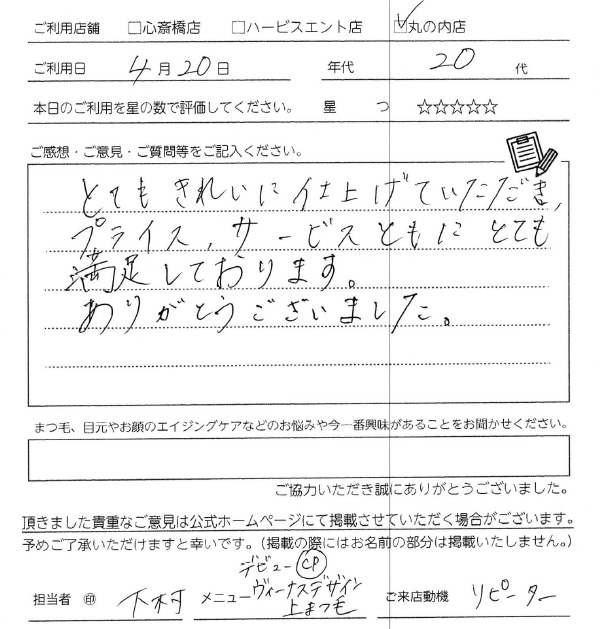 ご利用店舗 □心斎橋店 □ハービスエント店 ☑丸の内店
ご利用日 4月20日 年代 20代
本日のご利用を星の数で評価してください。 星 つ ☆☆☆☆☆
ご感想・ご意見・ご質問等をご記入ください。
とてもきれいに仕上げていただき、
プライス、サービスともにとても
満足しております。
ありがとうございました。
まつ毛、目元やお顔のエイジングケアなどのお悩みや今一番興味があることをお聞かせください。
ご協力いただき誠にありがとうございました。
頂きました貴重なご意見は公式ホームページにて掲載させていただく場合がございます。
予めご了承いただけますと幸いです。（掲載の際にはお名前の部分は掲載いたしません。）
デビューCP
担当者 ㊞ 下村 メニュー ヴィーナスデザイン ご来店動機 リピーター
上まつ毛